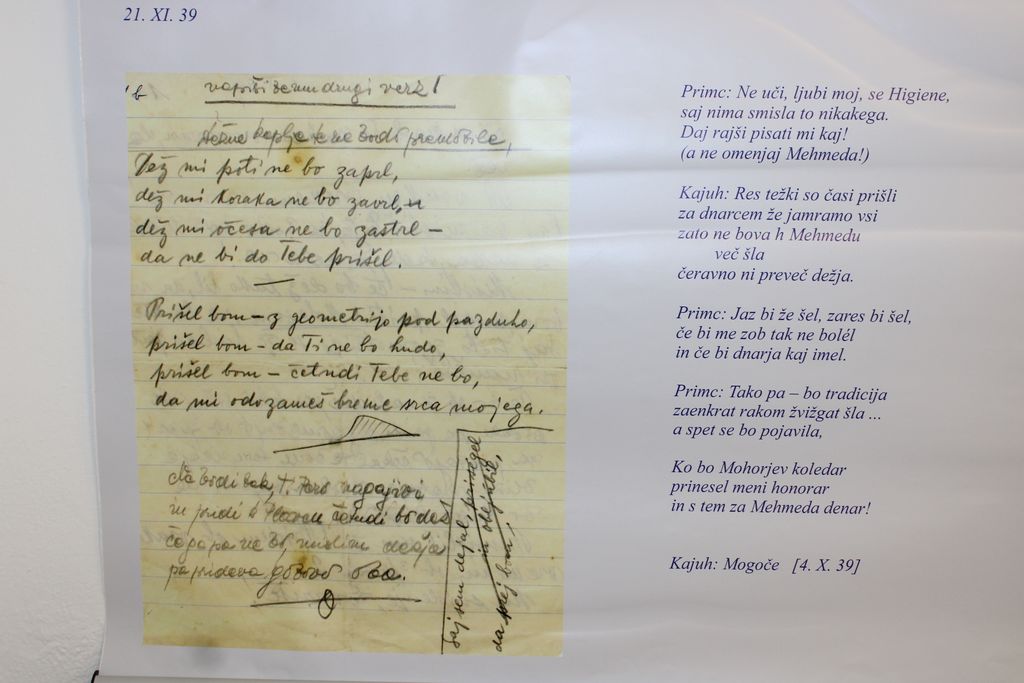 21. XI. 39
drugi verz!
Dež mi poti ne bo zaprl,
dež mi koraka ne bo zavrl,
dež mi očesa ne bo zastrl –
da ne bi do Tebe prišel.
Prišel bom – z geometrijo pod pazduho,
prišel bom – da Ti ne bo hudo,
prišel bom – četudi Tebe ne bo,
da mi odvzameš breme srca mojega.
in pridi k četudi bo dež
če pa pa ne bo, mislim dežja
pa prideva gotovo oba.
saj sem dejal, prisegel
in obljubil,
da prej bom,
Primc: Ne uči, ljubi moj, se Higiene,
saj nima smisla to nikakega.
Daj rajši pisati mi kaj!
(a ne omenjaj Mehmeda!)
Kajuh: Res težki so časi prišli
za dnarcem že jamramo vsi
zato ne bova h Mehmedu
več šla
čeravno ni preveč dežja.
Primc: Jaz bi že šel, zares bi šel,
če bi me zob tak ne bolél
in če bi dnarja kaj imel.
Primc: Tako pa – bo tradicija
zaenkrat rakom žvižgat šla ...
a spet se bo pojavila,
Ko bo Mohorjev koledar
prinesel meni honorar
in s tem za Mehmeda denar!
Kajuh: Mogoče [4. X. 39]